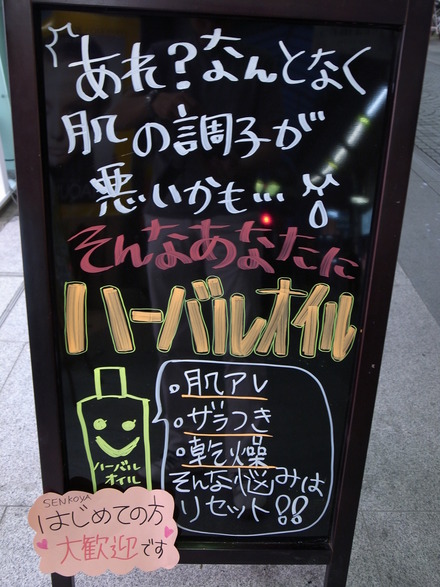 あれ?なんとなく
肌の調子が
悪いかも…
そんなあなたに
ハーバルオイル
。肌アレ
。ザラつき
。乾燥
そんな悩みは
リセット!!
ハーバル
オイル
SENKOYA
はじめての方
大歓迎です